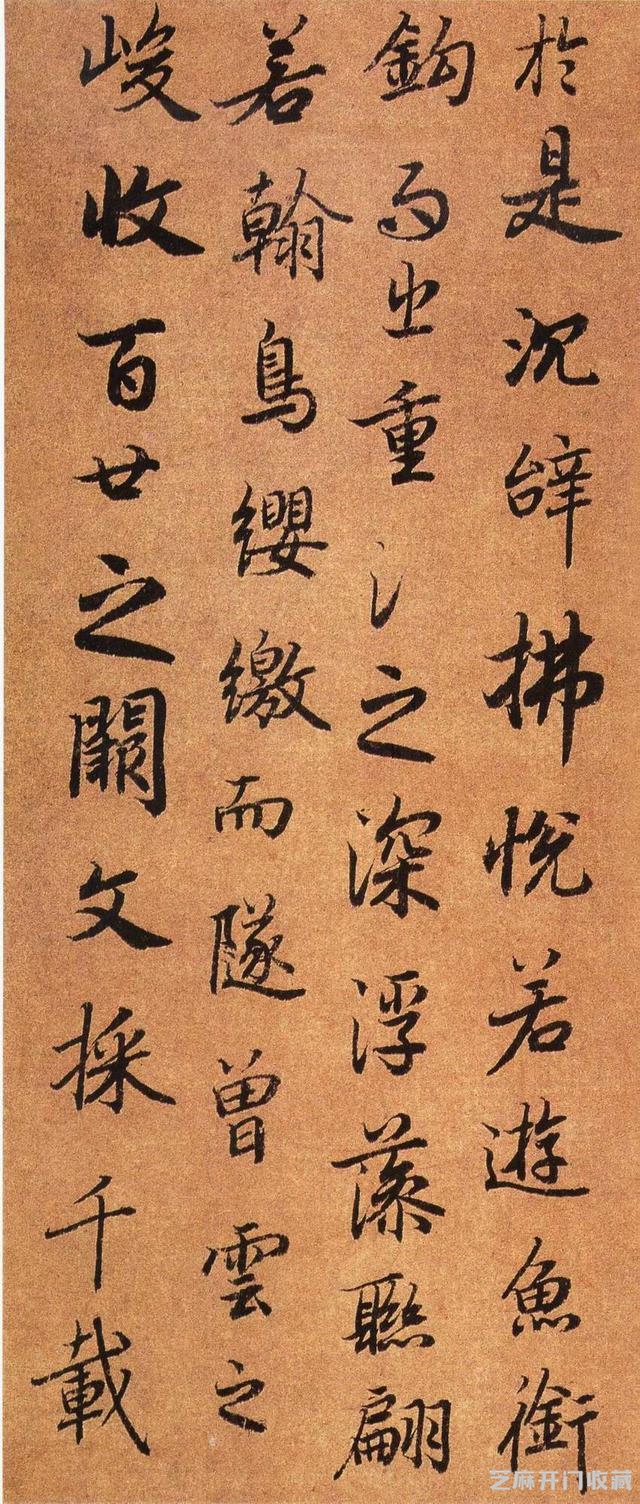 於是沉辝拂悅若遊魚銜
鈎而出重氵之深浮藻聯翩
若翰鳥纓繳而隊曾雲之
峻收百廿之闕文採千載
芝麻开门收藏